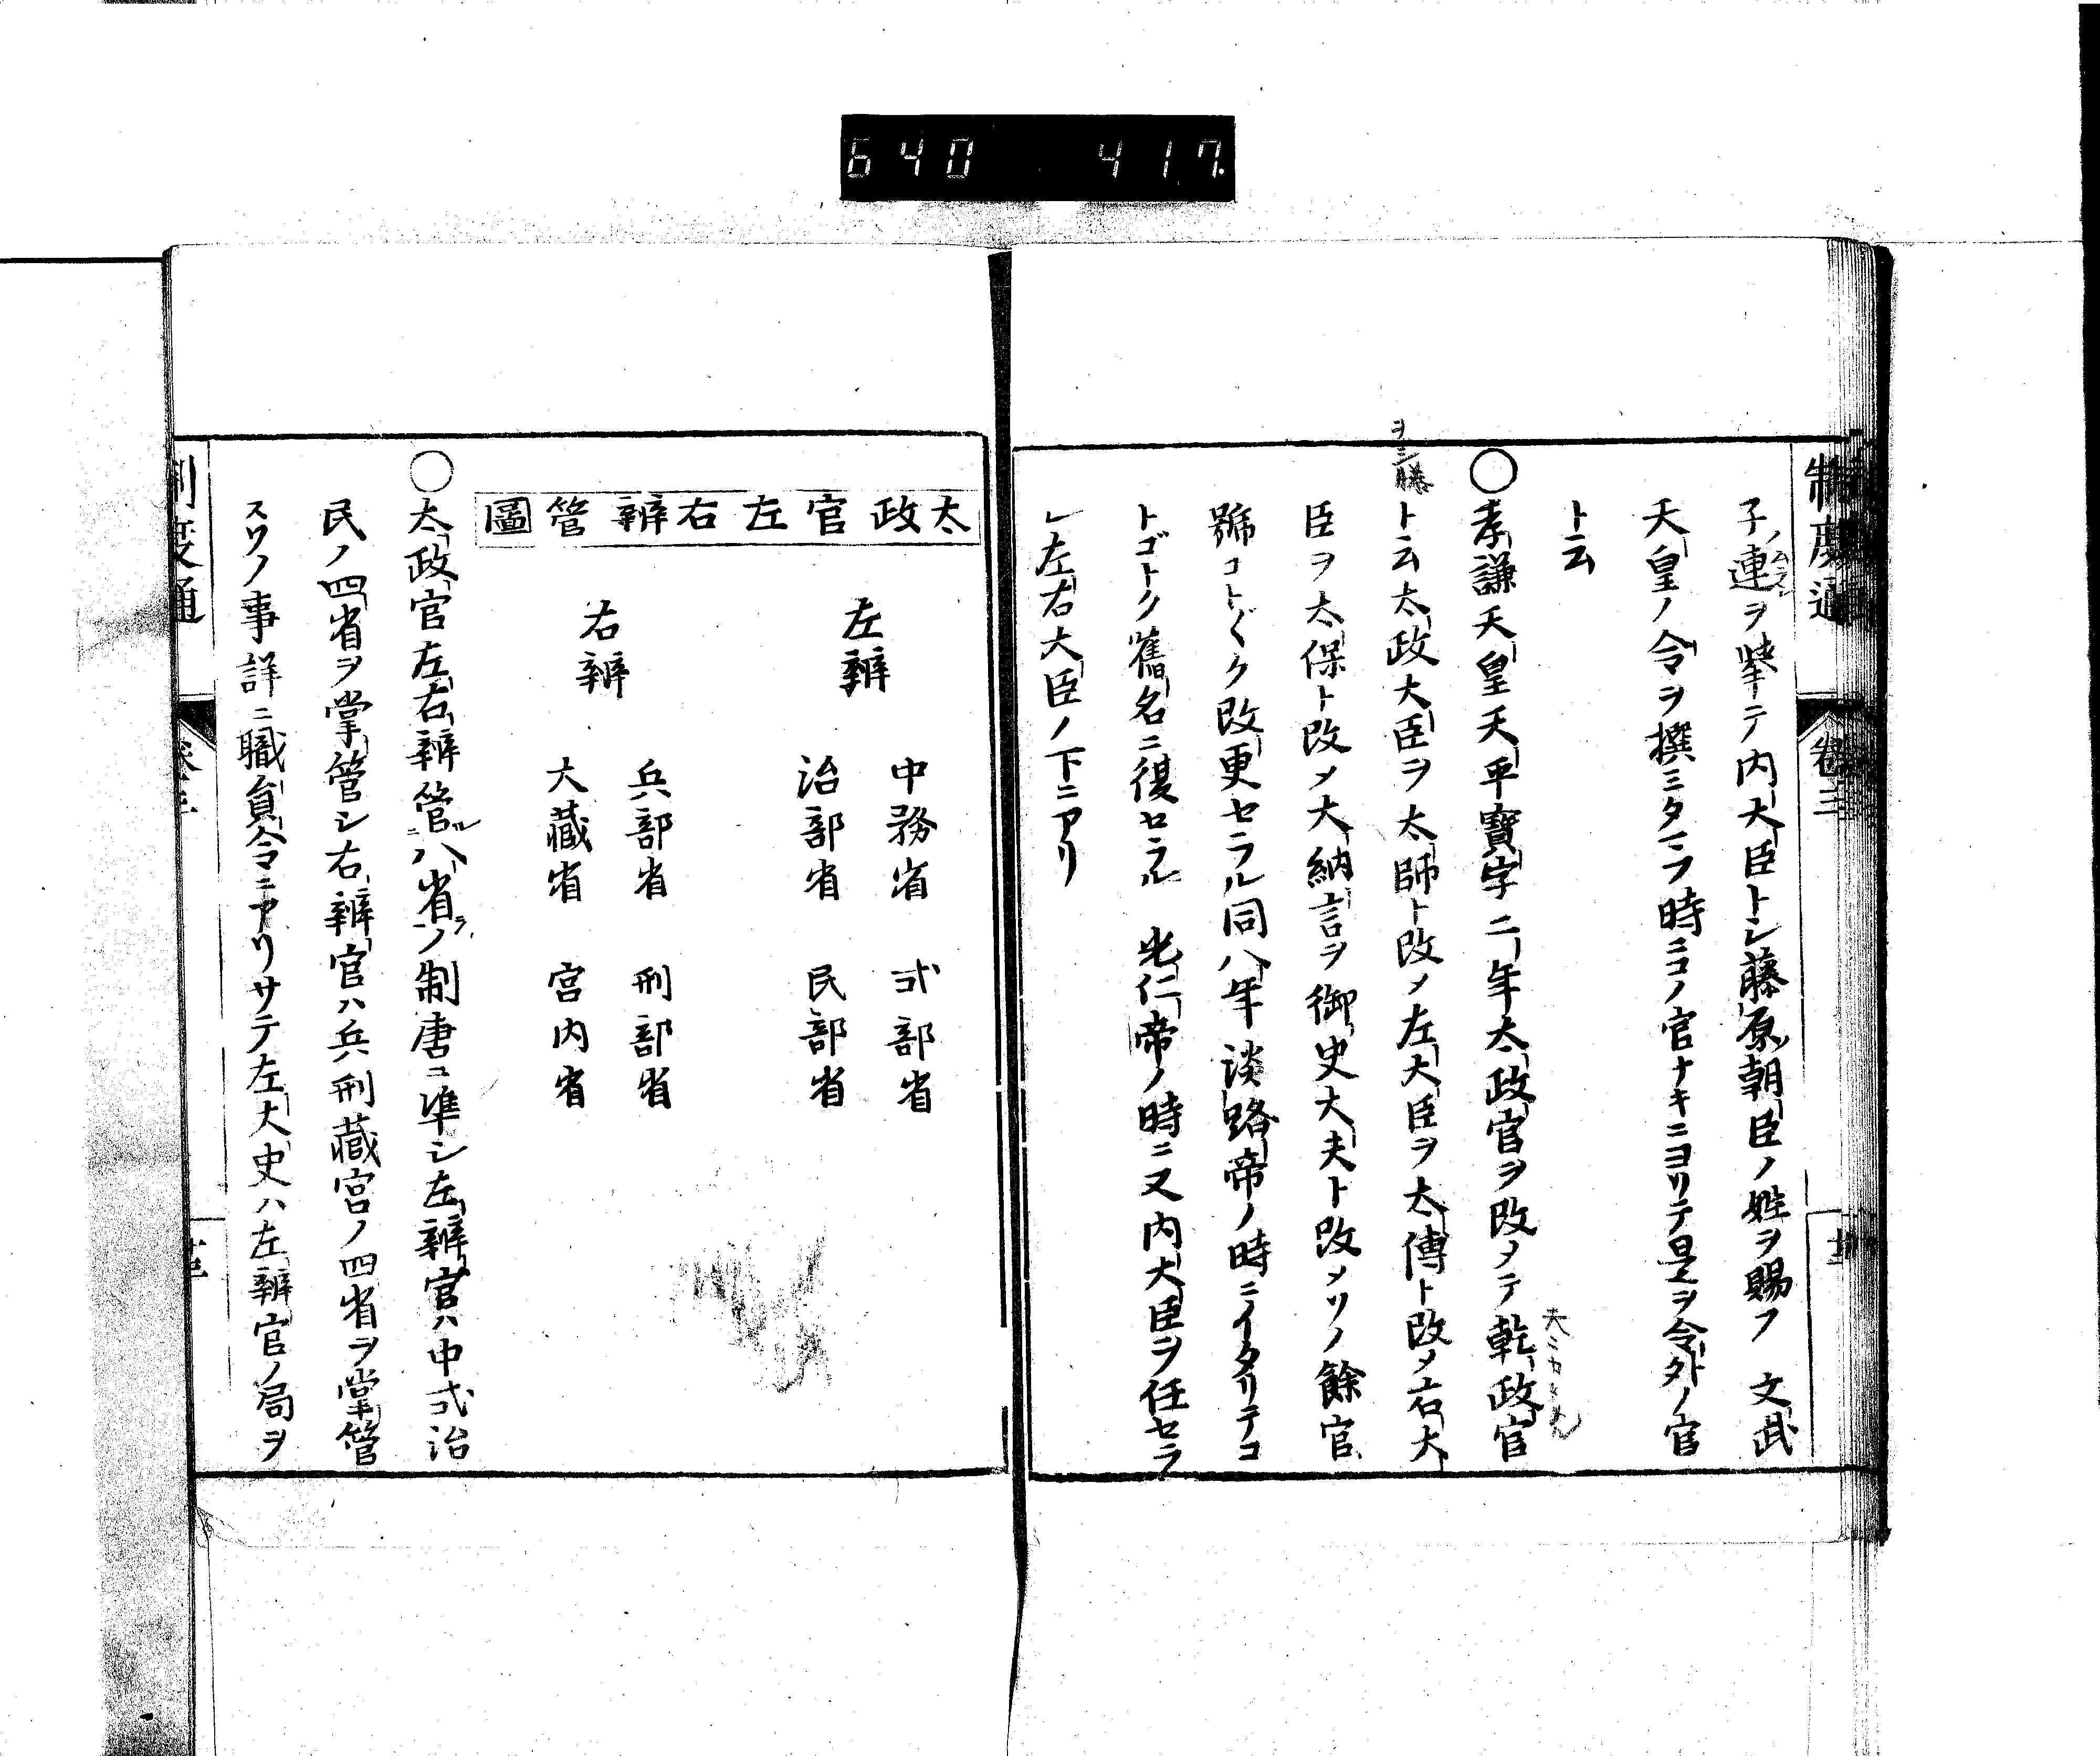 640 417.
制度通 卷三
子ノ連ヲ挙テ内大臣トシ藤原朝臣ノ姓ヲ賜フ 文武
天皇ノ令ヲ撰ミタマフ時ニコノ官ナキニヨリテ是ヲ令外ノ官
ト云
○孝謙天皇天平寶字二年太政官ヲ改メテ乾政官
ト云太政大臣ヲ太師ト改メ左大臣ヲ太傅ト改メ右大
臣ヲ太保ト改メ大納言ヲ御史大夫ト改メソノ餘官
號コト〲ク改更セラル同八年淡路帝ノ時ニイタリテコ
トゴトク舊名ニ復セラル 光仁帝ノ時ニ又内大臣ヲ任セラ
レ左右大臣ノ下ニアリ
太政官左右辨管圖
左辨
中務省 式部省
治部省 民部省
右辨
兵部省 刑部省
大藏省 宮内省
○太政官左右辨管ルハ省ヲノ制唐ニ準シ左辨官ハ中式治
民ノ四省ヲ掌管シ右辨官ハ兵刑藏宮ノ四省ヲ掌管
スソノ事詳ニ職員令ニアリサテ左大史ハ左辨官ノ局ヲ
制度通